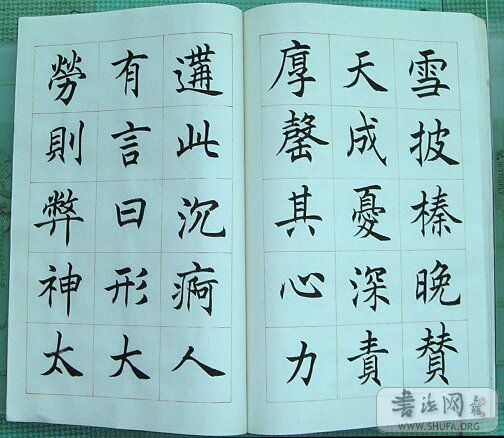 雪披榛晚賛
天成憂深責
厚罄其心力
遘此沉痾人
有言曰形大
勞則弊神太
书法网
WWW.SHUFA.ORG